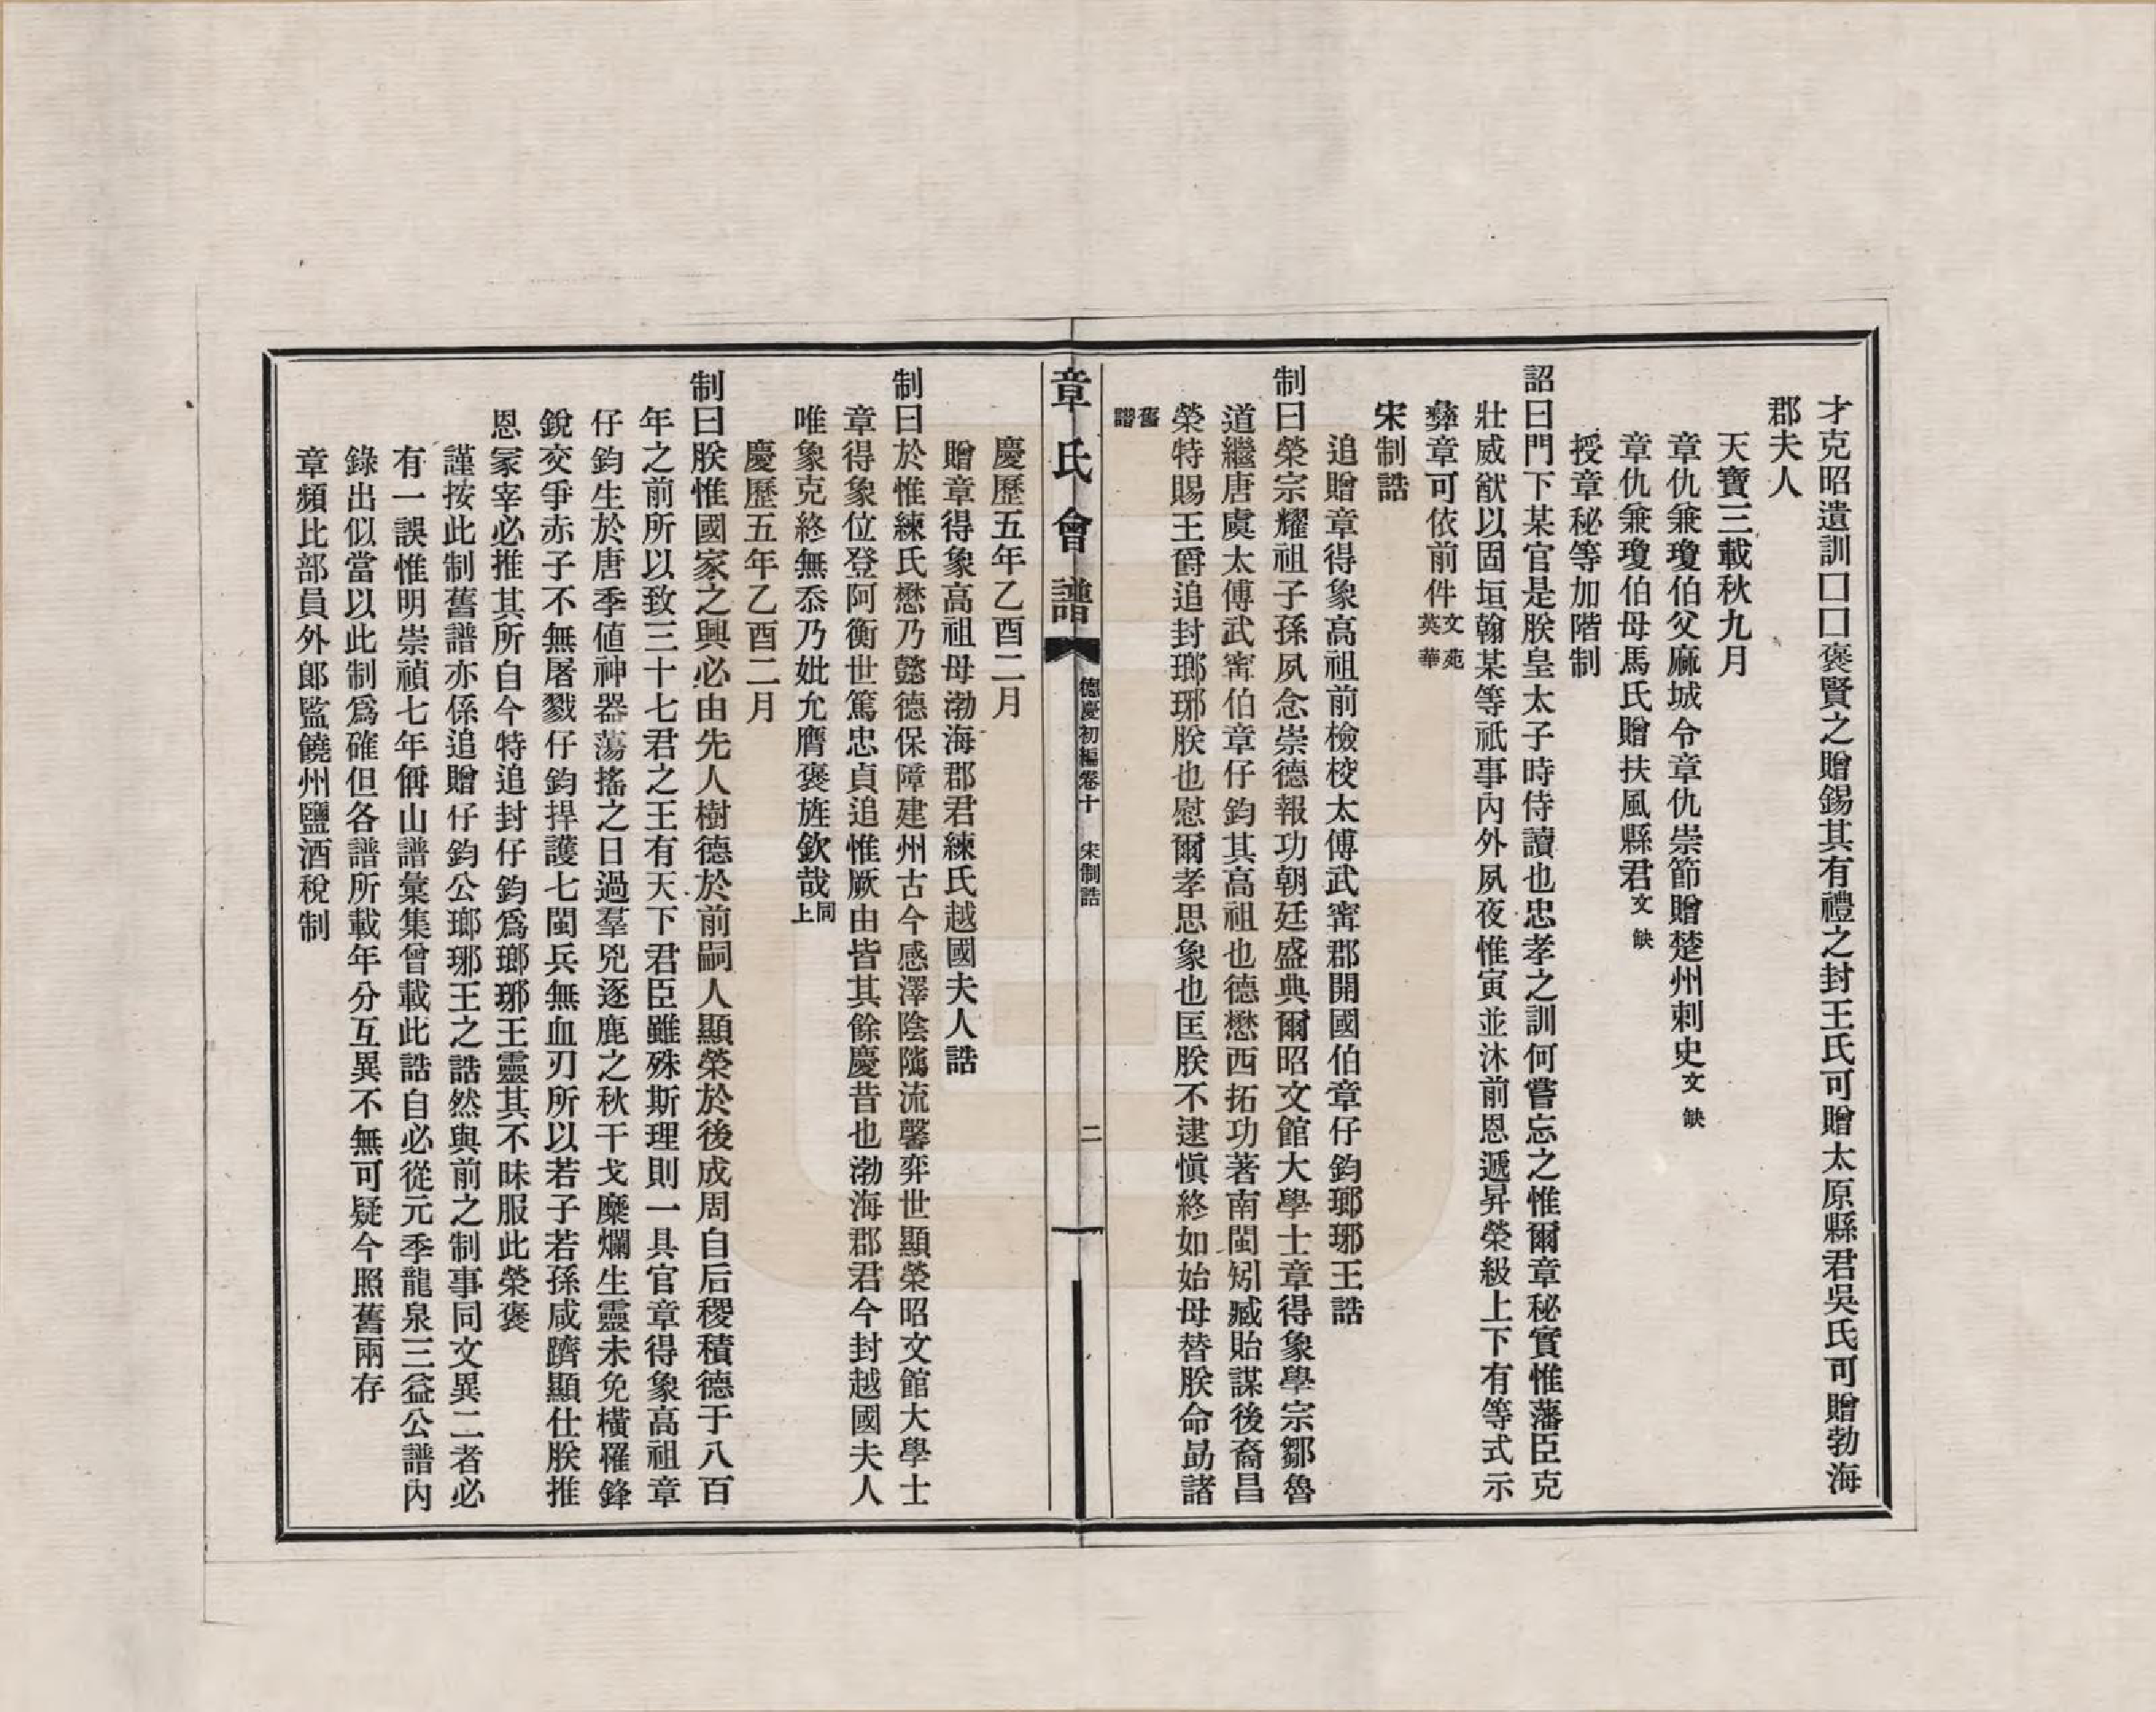 才克昭遺訓囗囗褒賢之贈錫其有禮之封王氏可贈太原縣君吳氏可贈勃海
郡夫人
天寶三載秋九月
章仇兼瓊伯父麻城令章仇崇節贈楚州刺史文缺
章仇兼瓊伯母馬氏贈扶風縣君文缺
授章秘等加階制
詔曰門下某官是朕皇太子時侍讀也忠孝之訓何嘗忘之惟爾章秘實惟藩臣克
壯威猷以固垣翰某等祇事內外夙夜惟寅並沐前恩遞昇榮級上下有等式示
彝章可依前件文苑英華
宋制誥
追贈章得象高祖前檢校太傅武甯郡開國伯章仔鈞瑯琊王誥
制曰榮宗耀祖子孫夙念崇德報功朝廷盛典爾昭文館大學士章得象學宗鄒魯
道繼唐虞太傅武甯伯章仔鈞其高祖也德懋西拓功著南閩矧臧貽謀後裔昌
榮特賜王爵追封瑯琊朕也慰爾孝思象也匡朕不逮愼終如始毋替朕命勗諸
舊譜
章氏會譜
德慶初編卷十
宋制誥
二
慶歷五年乙酉二月
贈章得象高祖母渤海郡君練氏越國夫人誥
制曰於惟練氏懋乃懿德保障建州古今感澤陰隲流馨弈世顯榮昭文館大學士
章得象位登阿衡世篤忠貞追惟厥由皆其餘慶昔也渤海郡君今封越國夫人
唯象克終無忝乃妣允膺褒旌欽哉同上
慶歷五年乙酉二月
制曰朕惟國家之興必由先人樹德於前嗣人顯榮於後成周自后稷積德于八百
年之前所以致三十七君之王有天下君臣雖殊斯理則一具官章得象高祖章
仔鈞生於唐季値神器蕩搖之日過羣兇逐鹿之秋干戈糜爛生靈未免橫罹鋒
銳交爭赤子不無屠戮仔鈞捍護七閩兵無血刃所以若子若孫咸躋顯仕朕推
恩冡宰必推其所自今特追封仔鈞爲瑯琊王靈其不昧服此榮褒
謹按此制舊譜亦係追贈仔鈞公瑯琊王之誥然與前之制事同文異二者必
有一誤惟明崇禎七年偁山譜彙集曾載此誥自必從元季龍泉三益公譜內
錄出似當以此制爲確但各譜所載年分互異不無可疑今照舊兩存
章頻比部員外郞監饒州鹽酒稅制